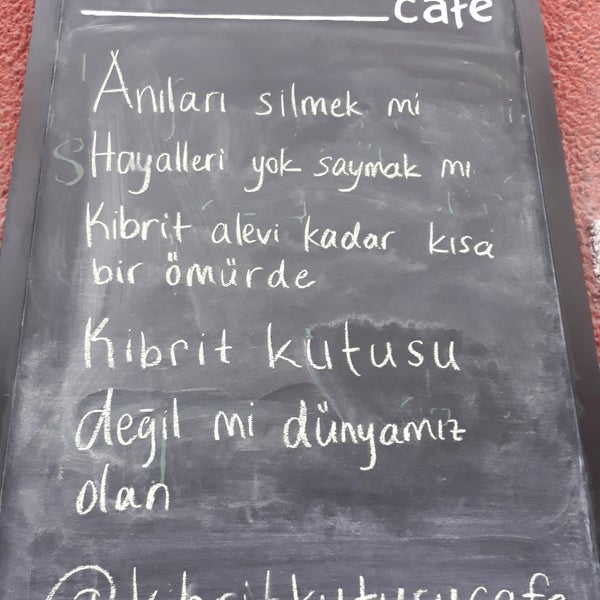 cafe
Anıları silmek mi
Hayalleri yok saymak mı
Kibrit alevi kadar kısa
bir ömürde
Kibrit kutusu
değil mi dünyamız
olan
@kibritkutusucafe